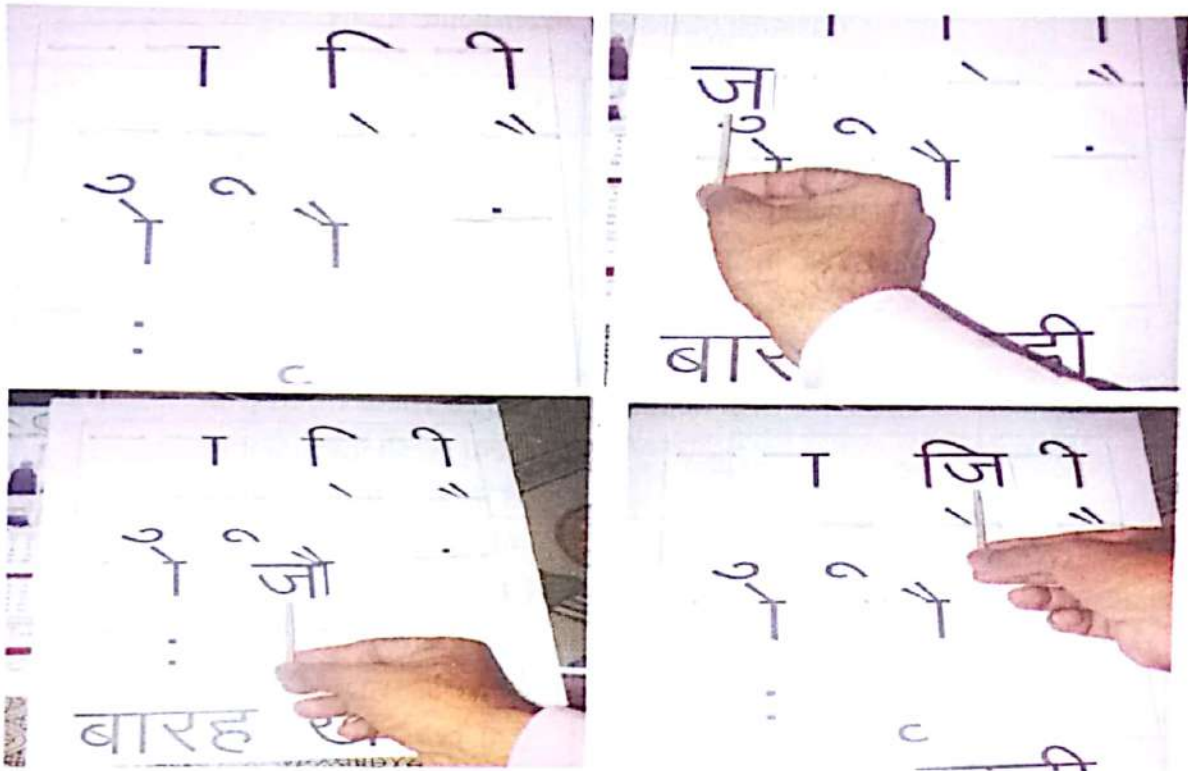 ा ि ी
े ै
ु ू
ो ौ ं
ः
जु
े ै
ू
ो ौ ं
बार
ा ि ी
े ै
ु ू
ो जौ ं
ः
बारह
ा जि ी
े ै
ु ू
ो ौ
ः